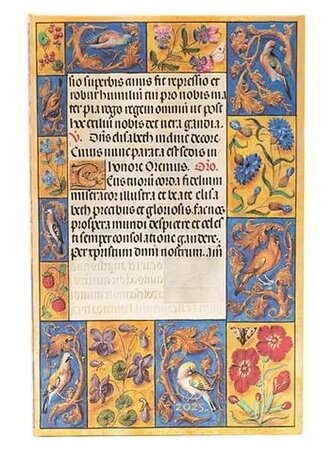 sio superbis annis fit repressio et
robur humilui cui pio nobis ma
ter pia rego regem omniū ut post
hoc exiliū nobis det vera gaudia.
V. Dn̄s elisabeth induit decore.
Cuius nunc parata est sedis in
Honore Oremus. Oro.
Tuorū corda fidelium
miserator illustra et beate elisa
beth precibus et gloriosis. fac nos
prospera mundi despicere et celes
ti semper consolatione gaudere.
Per xpistum dnm̄ nostrum. am̄
2025